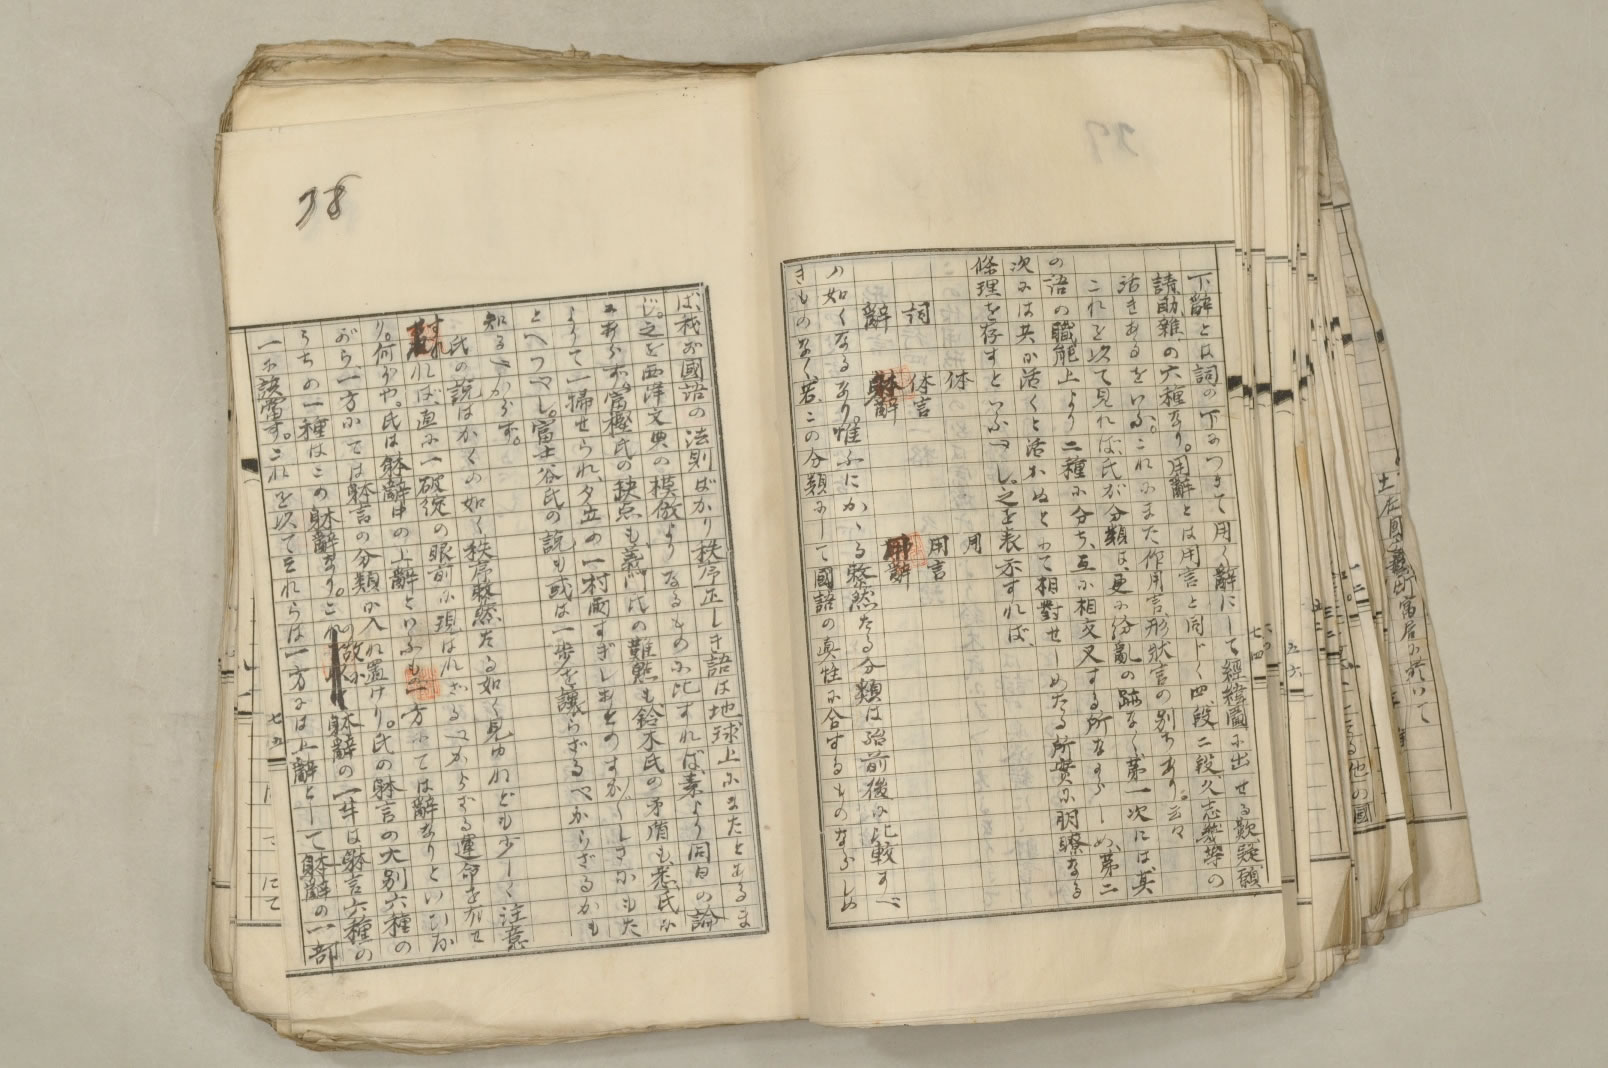 下辭とは詞の下につきて用く辭にして經緯圖に出せる歎疑願、
請助雜の六種あり。用辭とは用言と同じく四段二段久志幾等の
活きあるをいふ。これにまた作用言、形狀言の別ちあり。云々
これを以て見れば、氏が分類は、更に紛亂の跡なく、第一次には其
の語の職能上より二種に分ち、互に相交叉する所なからしめ、第二
次には共が活くと活かぬとにて相對せしめたる所、實に明瞭なる
條理を存すといふべし。之を表示すれば、
体 用
詞 体言 用言
辭 躰辭 用辭
の如くなるなり。惟ふにかゝる整然たる分類は殆前後に比較すべ
きものなく、若、この分類にして國語の眞性に合するものならしめ
38
ば、我が國語の法則ばかり秩序正しき語は地球上にまたとあるま
じ。之を西洋文典の模倣よりなるものに比すれば、素より同日の論
にあらず。富樫氏の缺点も、義門氏の難點も、鈴木氏の矛盾も、悉氏に
よりて一掃せられ、夕立の一村雨すぎしあとのすが〳〵しさにもた
とへつべし。富士谷氏の說も或は一步を讓らざるべからざるかも
知るべからず。
氏の說はかくの如く秩序整然たる如く見ゆれども少しく注意
すれば、直に一破綻の眼前に現はれざるべからざる運命を有せ
り。何ぞや。氏は躰辭中の上辭といふもの一方にては辭なりといひな
がら、一方にては躰言の分類に入れ置けり。氏の躰言の大別六種の
うちの一種はこの躰辭なり。この故に躰辭の一半は躰言六種の
一に該當す。これを以てそれらは一方には上辭として躰辭の一部
七四
七五